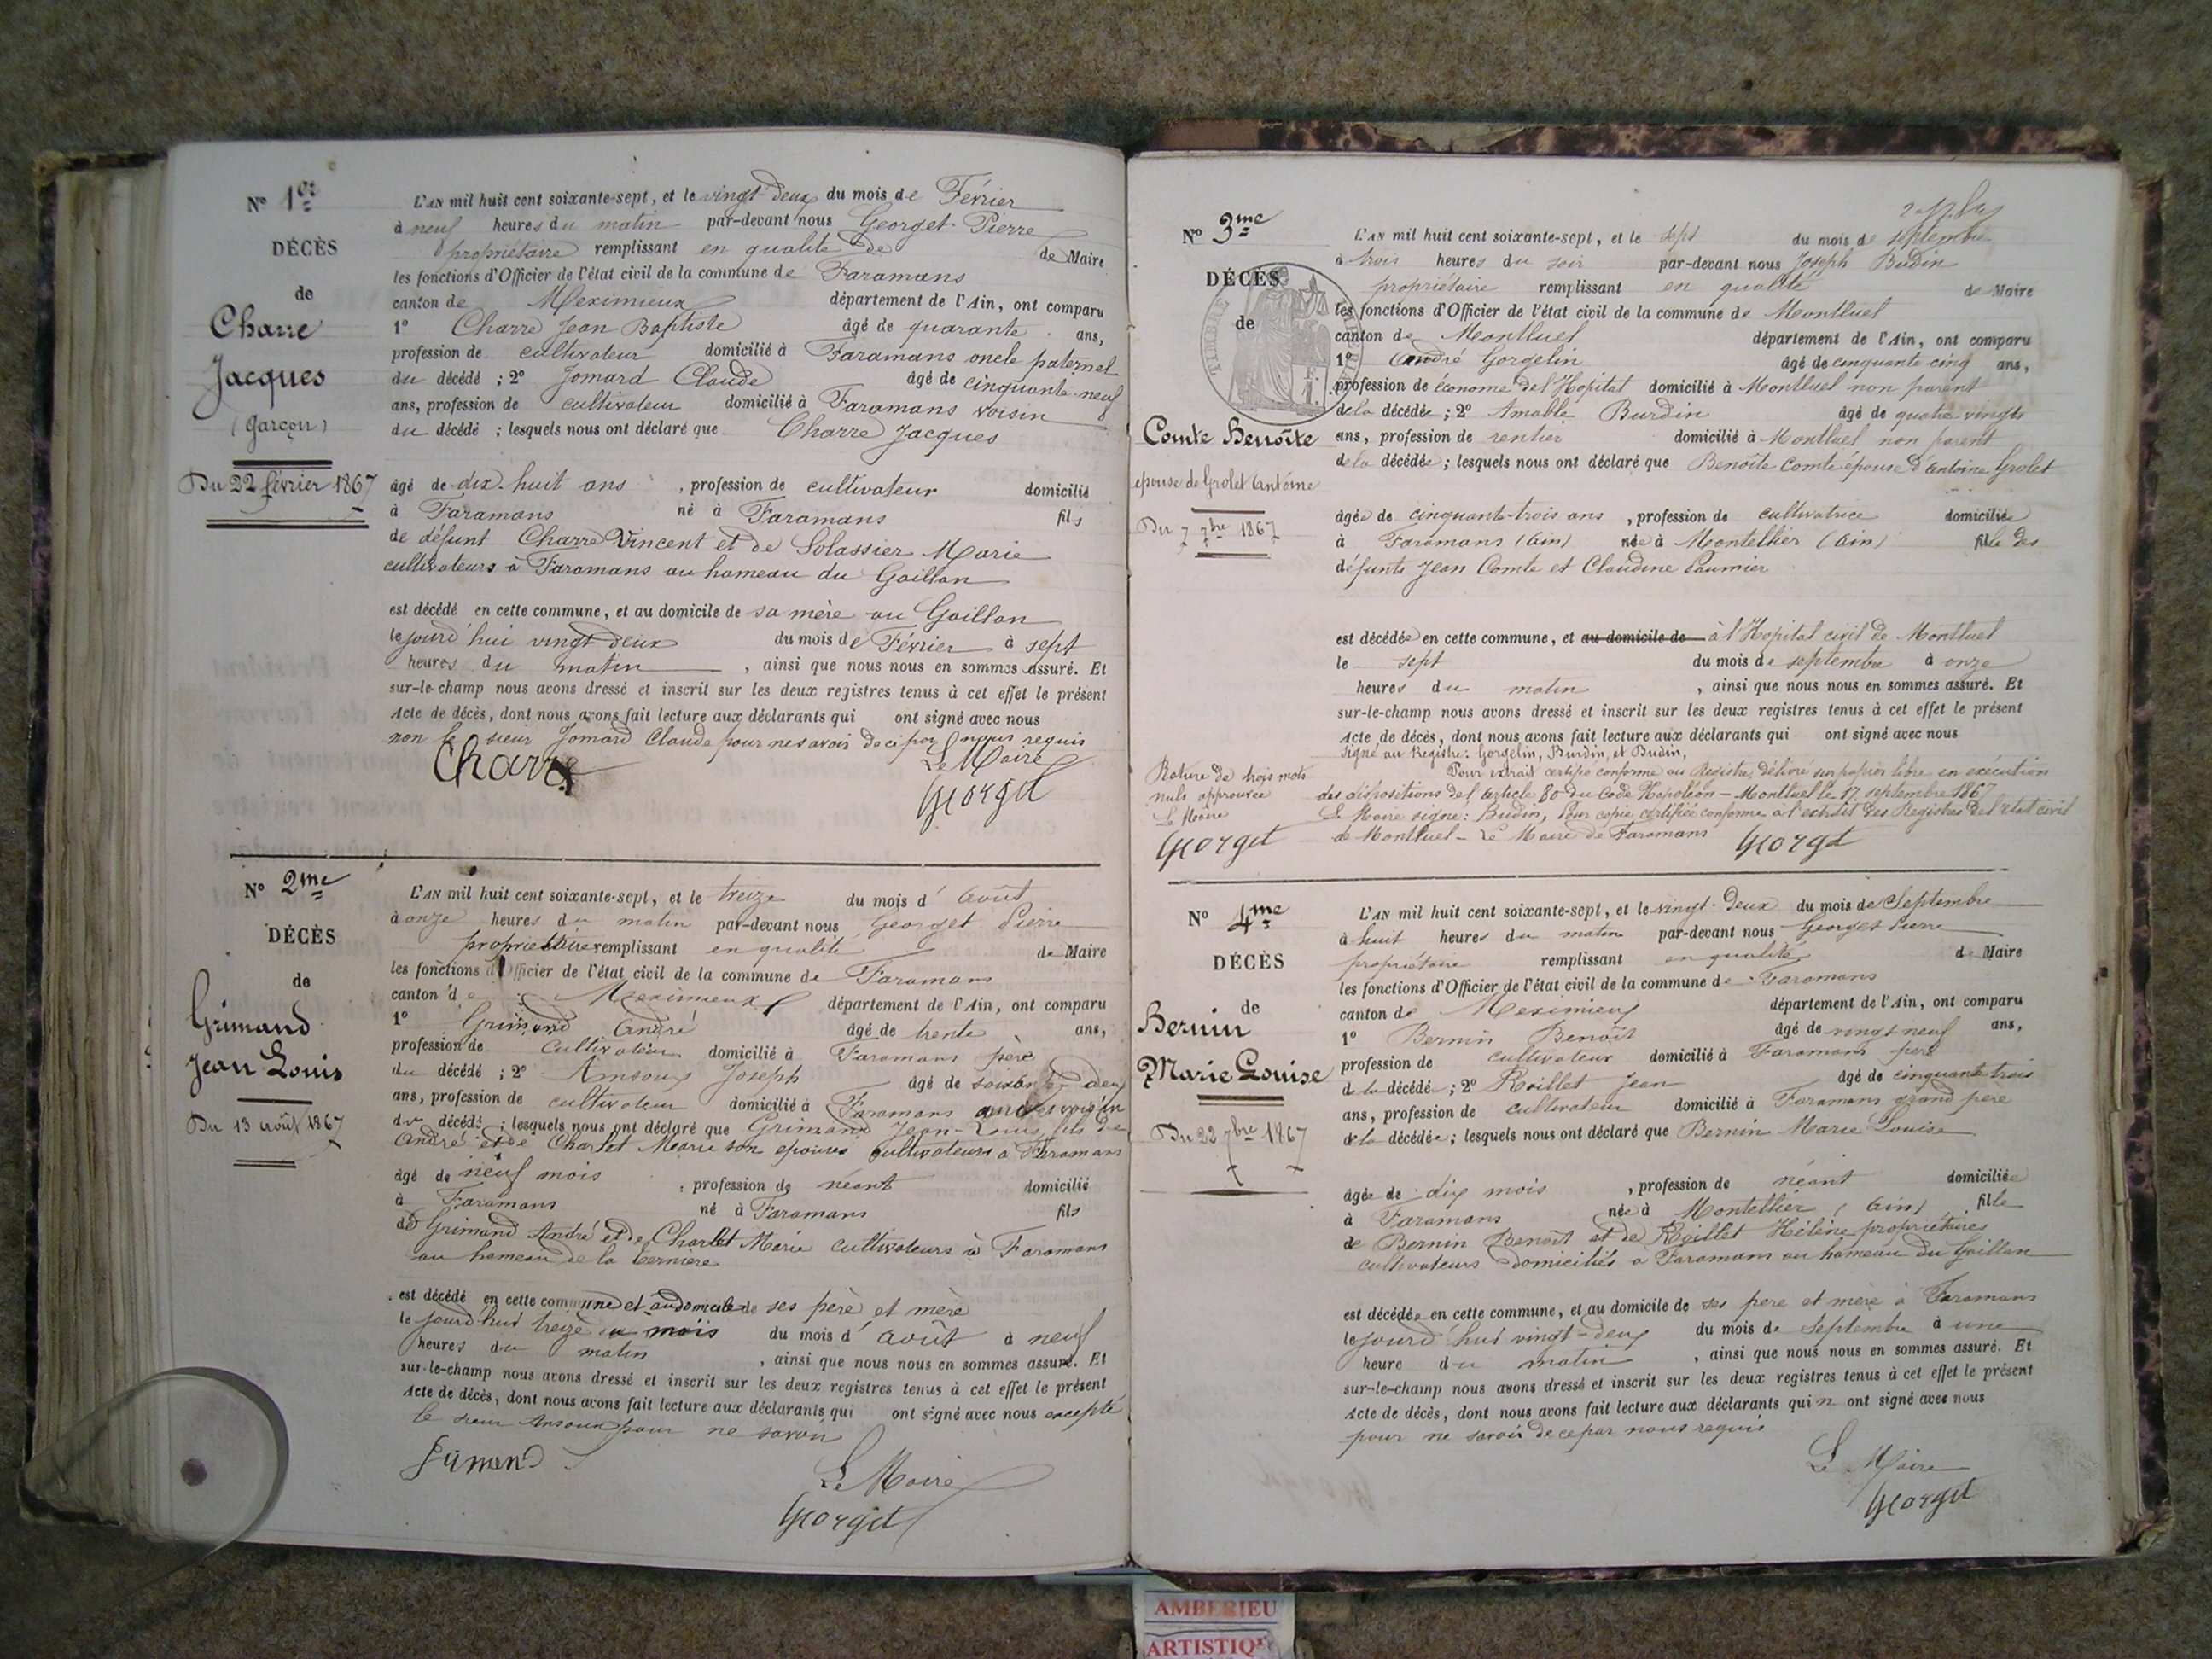 N° 1er
DÉCÈS
de
Charre
Jacques
(garçon)
Du 22 février 1867
L'AN mil huit cent soixante-sept, et le vingt deux du mois de Février
à neuf heures du matin par-devant nous Georget Pierre
propriétaire remplissant en qualité de de Maire
les fonctions d'Officier de l'état civil de la commune de Faramans
canton de Meximieux département de l'Ain, ont comparu
1° Charre Jean Baptiste âgé de quarante ans,
profession de cultivateur domicilié à Faramans oncle paternel
du décédé ; 2° Jomard Claude âgé de cinquante-neuf
ans, profession de cultivateur domicilié à Faramans voisin
du décédé ; lesquels nous ont déclaré que Charre Jacques
âgé de dix-huit ans , profession de cultivateur domicilié
à Faramans né à Faramans fils
de défunt Charre Vincent et de Solassier Marie
cultivateurs à Faramans au hameau du Gaillan
est décédé en cette commune, et au domicile de sa mère au Gaillan
le jourd'hui vingt deux du mois de Février à sept
heures du matin , ainsi que nous nous en sommes assuré. Et
sur-le-champ nous avons dressé et inscrit sur les deux registres tenus à cet effet le présent
Acte de décès, dont nous avons fait lecture aux déclarants qui ont signé avec nous
non le sieur Jomard Claude pour ne savoir de ce par nous requis
Charre Le Maire
Georget
N° 2me
DÉCÈS
de
Grimand
Jean Louis
Du 13 août 1867
L'AN mil huit cent soixante-sept, et le treize du mois d' août
à onze heures du matin par-devant nous Georget Pierre
propriétaire remplissant en qualité de Maire
les fonctions d'Officier de l'état civil de la commune de Faramans
canton de Meximieux département de l'Ain, ont comparu
1° Grimand André âgé de trente ans,
profession de cultivateur domicilié à Faramans père
du décédé ; 2° Ansoux Joseph âgé de soixante deux
ans, profession de cultivateur domicilié à Faramans voisin
du décédé ; lesquels nous ont déclaré que Grimand Jean-Louis fils de
André et de Charlet Marie son épouse cultivateurs à Faramans
âgé de neuf mois , profession de néant domicilié
à Faramans né à Faramans fils
de Grimand André et de Charlet Marie cultivateurs à Faramans
au hameau de la
est décédé en cette commune et au domicile de ses père et mère
le jourd'hui treize du mois du mois d' août à neuf
heures du matin , ainsi que nous nous en sommes assuré. Et
sur-le-champ nous avons dressé et inscrit sur les deux registres tenus à cet effet le présent
Acte de décès, dont nous avons fait lecture aux déclarants qui ont signé avec nous excepté
le sieur Ansoux pour ne savoir
Grimand Le Maire
Georget
N° 3me
DÉCÈS
de
TIMBRE
Comte Benoîte
épouse de Grolet Antoine
Du 7 7bre 1867
L'AN mil huit cent soixante-sept, et le sept du mois de septembre
à trois heures du soir par-devant nous Joseph Budin
propriétaire remplissant en qualité de Maire
les fonctions d'Officier de l'état civil de la commune de Montluel
canton de Montluel département de l'Ain, ont comparu
1° André Gorgelin âgé de cinquante cinq ans,
profession de économe de l'Hopital domicilié à Montluel non parent
de la décédée ; 2° Amable Burdin âgé de quatre vingts
ans, profession de rentier domicilié à Montluel non parent
de la décédée ; lesquels nous ont déclaré que Benoîte Comte épouse d'antoine Grolet
âgée de cinquante-trois ans , profession de cultivatrice domiciliée
à Faramans (Ain) née à Montellier (Ain) fille des
défunts Jean Comte et Claudine Paumier
est décédée en cette commune, et au domicile de à l'Hopital civil de Montluel
le sept du mois de septembre à onze
heures du matin , ainsi que nous nous en sommes assuré. Et
sur-le-champ nous avons dressé et inscrit sur les deux registres tenus à cet effet le présent
Acte de décès, dont nous avons fait lecture aux déclarants qui ont signé avec nous
Signé au Registre : Gorgelin, Burdin, et Budin,
Pour extrait certifié conforme au Registre, délivré sur papier libre en exécution
des dispositions de l'article 80 du Code Napoléon – Montluel le 17 septembre 1867
Le Maire signé : Budin, Pour copie certifiée conforme à l'extrait des Registres de l'état civil
de Montluel – Le Maire de Faramans Georget
Rature de trois mots
nuls approuvée
Le Maire
Georget
N° 4me
DÉCÈS
de
Bernin
Marie Louise
Du 22 7bre 1867
L'AN mil huit cent soixante-sept, et le vingt-deux du mois de Septembre
à huit heures du matin par-devant nous Georget Pierre
propriétaire remplissant en qualité de Maire
les fonctions d'Officier de l'état civil de la commune de Faramans
canton de Meximieux département de l'Ain, ont comparu
1° Bernin Benoît âgé de vingt neuf ans,
profession de cultivateur domicilié à Faramans père
de la décédée ; 2° Roillet Jean âgé de cinquante trois
ans, profession de cultivateur domicilié à Faramans grand père
de la décédée ; lesquels nous ont déclaré que Bernin Marie Louise
âgée de dix mois , profession de néant domiciliée
à Faramans née à Montellier (Ain) fille
de Bernin Benoît et de Roillet Hélène propriétaires
cultivateurs domiciliés à Faramans au hameau du Gaillan
est décédée en cette commune, et au domicile de ses père et mère à Faramans
le jourd'hui vingt-deux du mois de Septembre à une
heure du matin , ainsi que nous nous en sommes assuré. Et
sur-le-champ nous avons dressé et inscrit sur les deux registres tenus à cet effet le présent
Acte de décès, dont nous avons fait lecture aux déclarants qui n'ont signé avec nous
pour ne savoir de ce par nous requis
Le Maire
Georget
AMBERIEU
ARTISTIQ